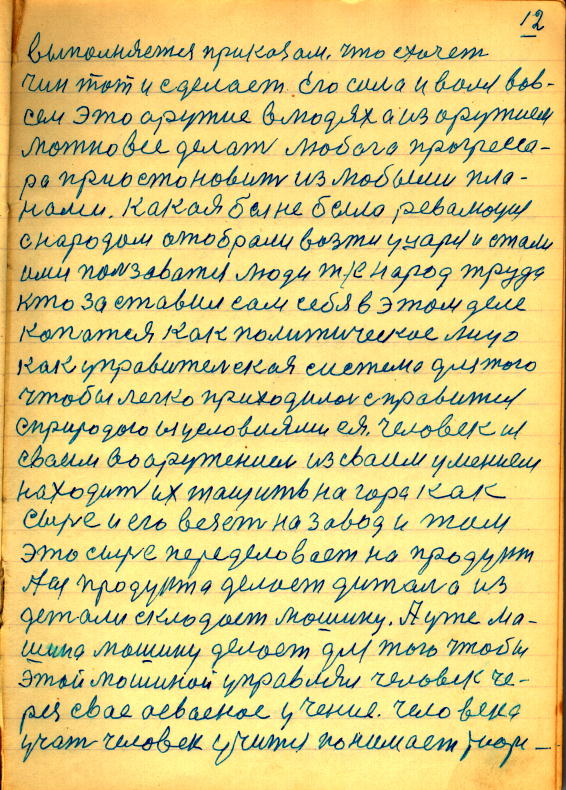 12
выполняется приказам. что схочет
чин тот и сделает. Его сила и воля вов-
сем это аружие в людях а из аружием
можно все делат любога прогресса-
ра приостоновит из любыми пла-
нами. Какая бы не была революция
с народам отобрали возжи у царя и стали
ими ползоватся люди тже народ труда
кто заставил сам себя в этом деле
копатся как политическое лицо
как управителская система для того
чтобы легко приходилос справится
с природого и условиями ея. человек из
сваим вооружением из сваим умением
находит их тащить на гора как
сыре и его везет на завод и там
это сырс переделовает на продукт
А из продукта делает дитала из
детали складает мошину. А уже ма-
шина мошину делает для того чтобы
этой мошиной управлял человек че-
рез свае асваеное учение. человека
учат человек учится понимает